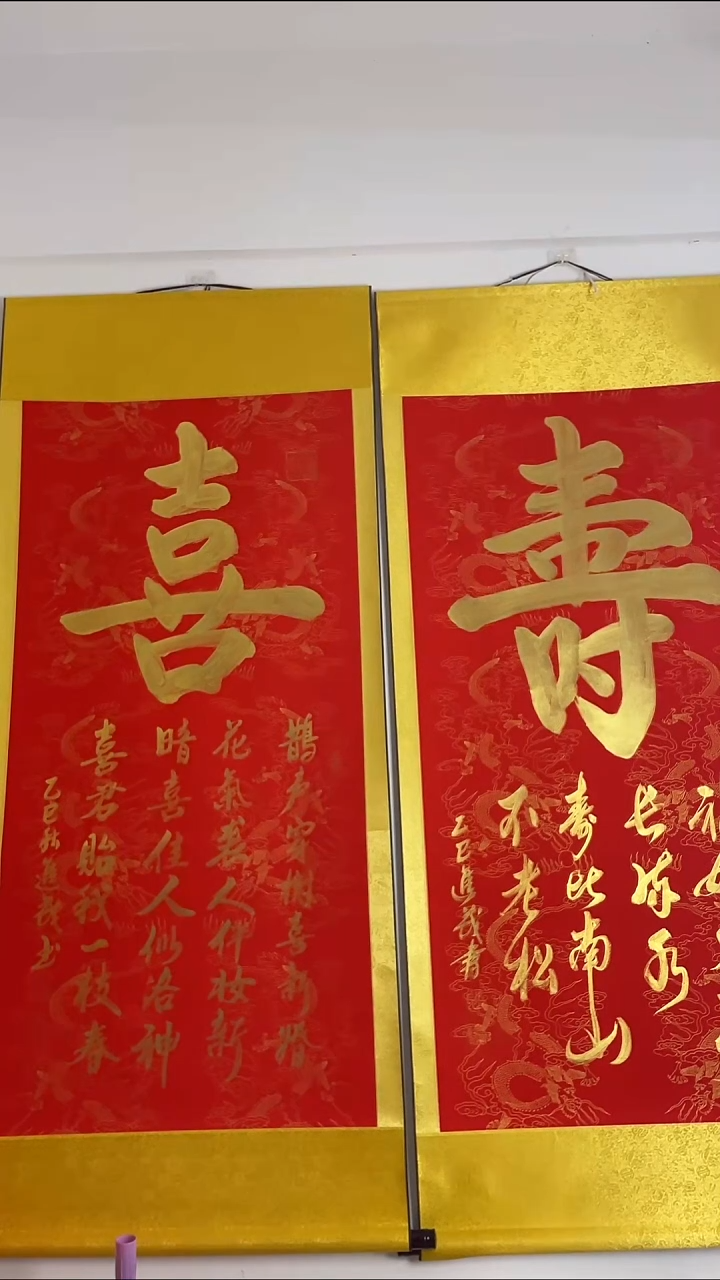 喜
鹊声穿树喜新
花氣袭人伴妆新
暗喜佳人似洛神
喜君贻我一枝春
乙巳秋進茂书
寿
福如
长流水
寿比南山
不老松
乙巳進茂書